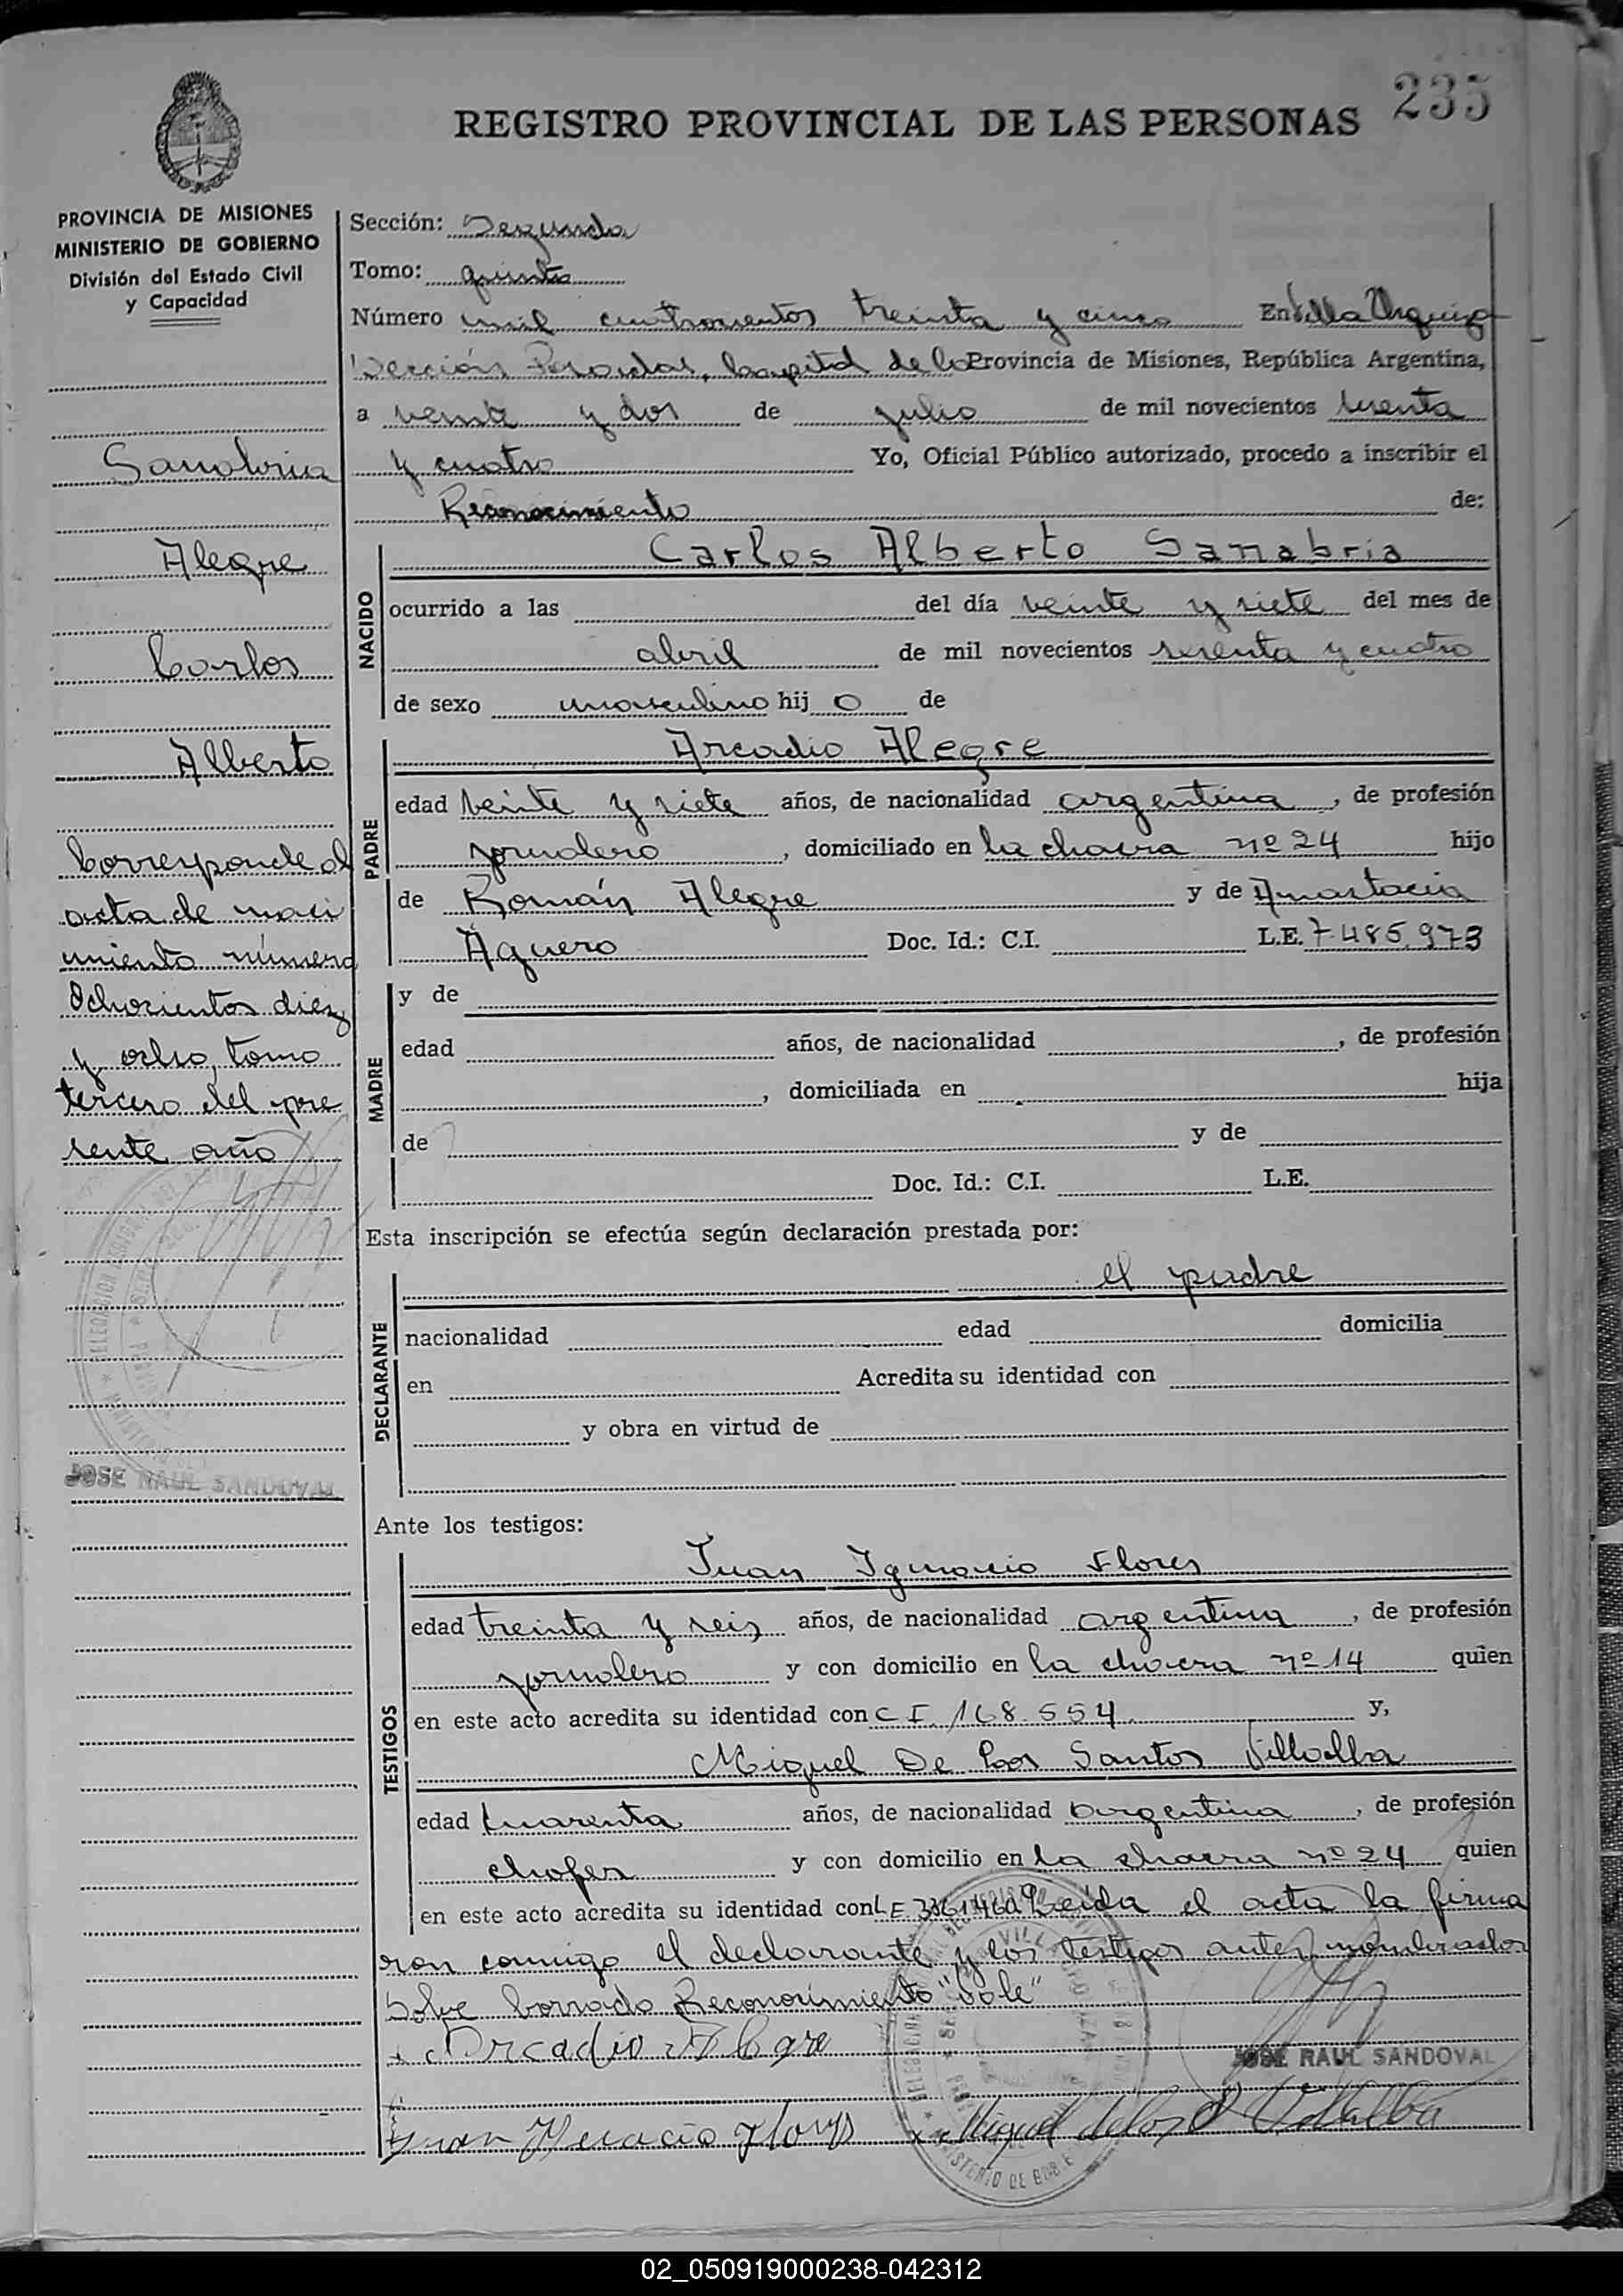 235
REGISTRO PROVINCIAL DE LAS PERSONAS
PROVINCIA DE MISIONES
MINISTERIO DE GOBIERNO
División del Estado Civil
y Capacidad
Sanabria
Alegre
Carlos
Alberto
Corresponde al
acta de naci
miento número
Ochocientos diez
y ocho, tomo
tercero del pre
sente año
JOSE RAUL SANDOVAL
Sección: Segunda
Tomo: quinto
Número mil cuatrocientos treinta y cinco En Villa Urquiza
Sección Posadas, Capital de la Provincia de Misiones, República Argentina,
a veinte y dos de julio de mil novecientos sesenta
y cuatro Yo, Oficial Público autorizado, procedo a inscribir el
Reconocimiento de:
NACIDO
Carlos Alberto Sanabria
ocurrido a las del día veinte y siete del mes de
abril de mil novecientos sesenta y cuatro
de sexo masculino hij o de
PADRE
Arcadio Alegre
edad veinte y siete años, de nacionalidad argentina, de profesión
jornalero, domiciliado en la chacra nº 24 hijo
de Román Alegre y de Anastacia
Aguero Doc. Id.: C.I. L.E. 7.485.973
MADRE
y de
edad años, de nacionalidad , de profesión
, domiciliada en hija
de y de
Doc. Id.: C.I. L.E.
Esta inscripción se efectúa según declaración prestada por:
DECLARANTE
el padre
nacionalidad edad domicilia
en Acredita su identidad con
y obra en virtud de
Ante los testigos:
TESTIGOS
Juan Ignacio Flores
edad treinta y seis años, de nacionalidad argentina, de profesión
jornalero y con domicilio en la chacra nº 14 quien
en este acto acredita su identidad con C I. 168.554 y,
Miguel De Los Santos Villalba
edad cuarenta años, de nacionalidad argentina, de profesión
chofer y con domicilio en la chacra nº 24 quien
en este acto acredita su identidad con L E Leída el acta la firma
ron conmigo el declarante y los testigos antes nombrados
Sobre borrado Reconocimiento "Vale"
Arcadio Alegre
JOSE RAUL SANDOVAL
Juan Ignacio Flores Miguel de los S Villalba
02_050919000238-042312